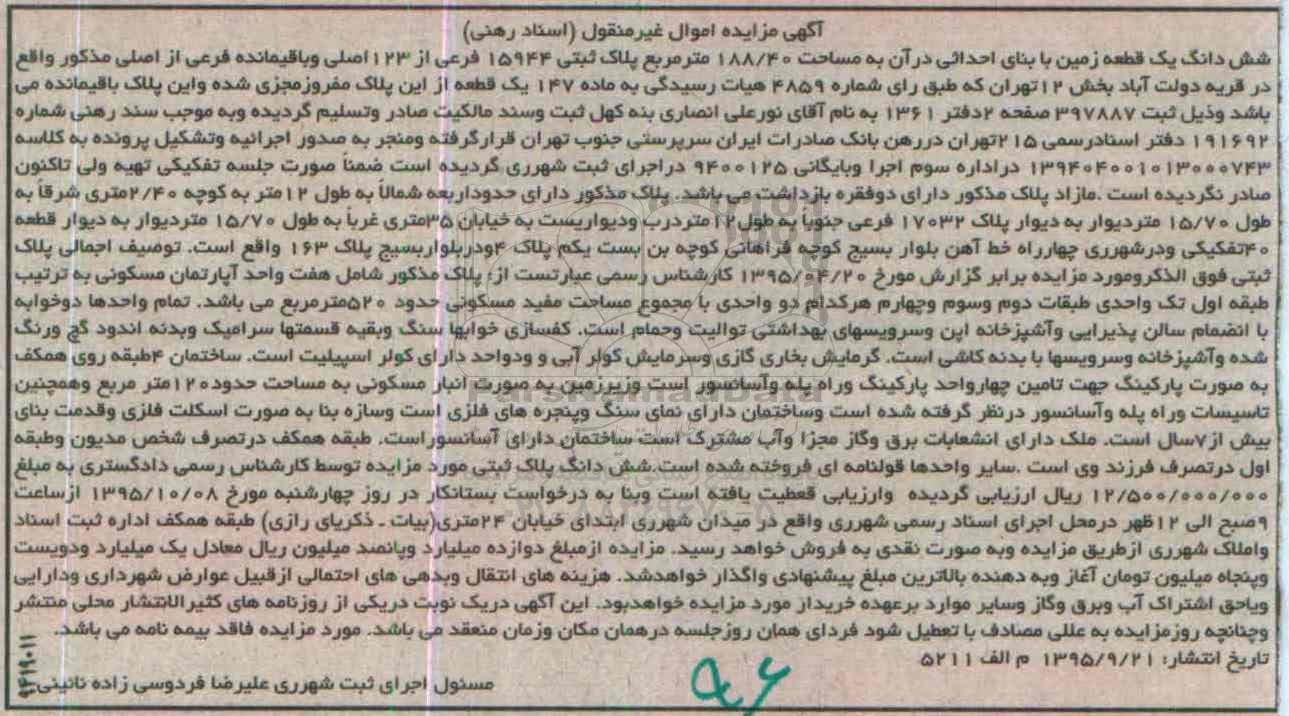 آگهی مزایده اموال غیرمنقول (اسناد رهنی)
شش دانگ یک قطعه زمین با بنای احداثی درآن به مساحت ۱۸۸/۴۰ مترمربع پلاک ثبتی ۱۵۹۴۴ فرعی از ۱۲۳اصلی وباقیمانده فرعی از اصلی مذکور واقع
در قریه دولت آباد بخش ۱۲تهران که طبق رای شماره ۴۸۵۹ هیات رسیدگی به ماده ۱۴۷ یک قطعه از این پلاک مفروزمجزی شده واین پلاک باقیمانده می
باشد وذیل ثبت ۳۹۷۸۸۷ صفحه ۲دفتر ۱۳۶۱ به نام آقای نورعلی انصاری بنه کهل ثبت وسند مالکیت صادر وتسلیم گردیده وبه موجب سند رهنی شماره
۱۹۱۶۹۲ دفتر اسنادرسمی ۲۱۵تهران دررهن بانک صادرات ایران سرپرستی جنوب تهران قرارگرفته ومنجر به صدور اجرائیه وتشکیل پرونده به کلاسه
۱۳۹۴۰۴۰۰۱۰۱۳۰۰۰۷۴۳ دراداره سوم اجرا وبایگانی ۹۴۰۰۱۲۵ دراجرای ثبت شهرری گردیده است ضمناً صورت جلسه تفکیکی تهیه ولی تاکنون
صادر نگردیده است .مازاد پلاک مذکور دارای دوفقره بازداشت می باشد. پلاک مذکور دارای حدوداربعه شمالاً به طول ۱۲متر به کوچه ۲/۴۰متری شرقاً به
طول ۱۵/۷۰ متردیوار به دیوار پلاک ۱۷۰۳۲ فرعی جنوباً به طول ۱۲متردرب ودیواریست به خیابان ۳۵متری غرباً به طول ۱۵/۷۰ متردیوار به دیوار قطعه
۴۰تفکیکی ودرشهرری چهارراه خط آهن بلوار بسیج کوچه فراهانی کوچه بن بست یکم پلاک ۴ودربلواربسیج پلاک ۱۶۳ واقع است. توصیف اجمالی پلاک
ثبتی فوق الذکرومورد مزایده برابر گزارش مورخ ۱۳۹۵/۰۴/۲۰ کارشناس رسمی عبارتست از: پلاک مذکور شامل هفت واحد آپارتمان مسکونی به ترتیب
طبقه اول تک واحدی طبقات دوم وسوم وچهارم هرکدام دو واحدی با مجموع مساحت مفید مسکونی حدود ۵۲۰مترمربع می باشد. تمام واحدها دوخوابه
با انضمام سالن پذیرایی وآشپزخانه اپن وسرویسهای بهداشتی توالیت وحمام است. کفسازی خوابها سنگ وبقیه قسمتها سرامیک وبدنه اندود گچ ورنگ
شده وآشپزخانه وسرویسها با بدنه کاشی است. گرمایش بخاری گازی وسرمایش کولر آبی و ودواحد دارای کولر اسپیلیت است. ساختمان ۴طبقه روی همکف
به صورت پارکینگ جهت تامین چهارواحد پارکینگ وراه پله وآسانسور است وزیرزمین به صورت انبار مسکونی به مساحت حدود۱۲۰متر مربع وهمچنین
تاسیسات وراه پله وآسانسور درنظر گرفته شده است وساختمان دارای نمای سنگ وپنجره های فلزی است وسازه بنا به صورت اسکلت فلزی وقدمت بنای
بیش از۷سال است. ملک دارای انشعابات برق وگاز مجزا وآب مشترک است ساختمان دارای آسانسوراست. طبقه همکف درتصرف شخص مدیون وطبقه
اول درتصرف فرزند وی است .سایر واحدها قولنامه ای فروخته شده است.شش دانگ پلاک ثبتی مورد مزایده توسط کارشناس رسمی دادگستری به مبلغ
۱۲/۵۰۰/۰۰۰/۰۰۰ ریال ارزیابی گردیده وارزیابی قعطیت یافته است وبنا به درخواست بستانکار در روز چهارشنبه مورخ ۱۳۹۵/۱۰/۰۸ ازساعت
۹صبح الی ۱۲ظهر درمحل اجرای اسناد رسمی شهرری واقع در میدان شهرری ابتدای خیابان ۲۴متری(بیات ـ ذکریای رازی) طبقه همکف اداره ثبت اسناد
واملاک شهرری ازطریق مزایده وبه صورت نقدی به فروش خواهد رسید. مزایده ازمبلغ دوازده میلیارد وپانصد میلیون ریال معادل یک میلیارد ودویست
وپنجاه میلیون تومان آغاز وبه دهنده بالاترین مبلغ پیشنهادی واگذار خواهدشد. هزینه های انتقال وبدهی های احتمالی ازقبیل عوارض شهرداری ودارایی
ویاحق اشتراک آب وبرق وگاز وسایر موارد برعهده خریدار مورد مزایده خواهدبود. این آگهی دریک نوبت دریکی از روزنامه های کثیرالانتشار محلی منتشر
وچنانچه روزمزایده به عللی مصادف با تعطیل شود فردای همان روزجلسه درهمان مکان وزمان منعقد می باشد. مورد مزایده فاقد بیمه نامه می باشد.
تاریخ انتشار: ۱۳۹۵/۹/۲۱ م الف ۵۲۱۱
مسئول اجرای ثبت شهرری علیرضا فردوسی زاده نائینی
ParsNamadData